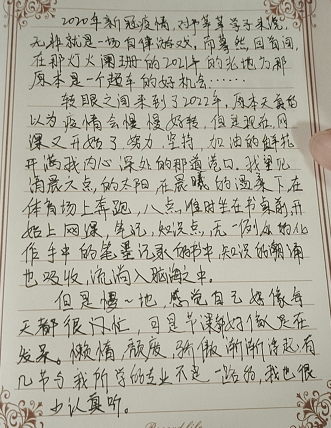 2020年新冠疫情，对于莘莘学子来说，
无非就是一场自律游戏，而蓦然回首间，
在那灯火阑珊的2021年的
原本是一个超车的好机会……
转眼之间来到了2022年，原本天真的
以为疫情会慢慢好转，但是现在，网
课又开始了。努力，坚持，加油的鲜花
开满我内心深处的那道
清晨六点，的太阳，在晨曦的温柔下在
体育场上奔跑，八点，准时坐在书桌前，开
始上网课，笔记，知识点，无一例外的化
作手中的笔墨记录的书中，知识的潮涌
也吸收，流淌入脑海之中。
但是慢～地，感觉自己好像每
天都很的忙，可是节课都好像是在
发呆。懒惰，颓废，骄傲渐渐浮起，有
几节与我所学的专业不是一路的，我也很
少认真听。